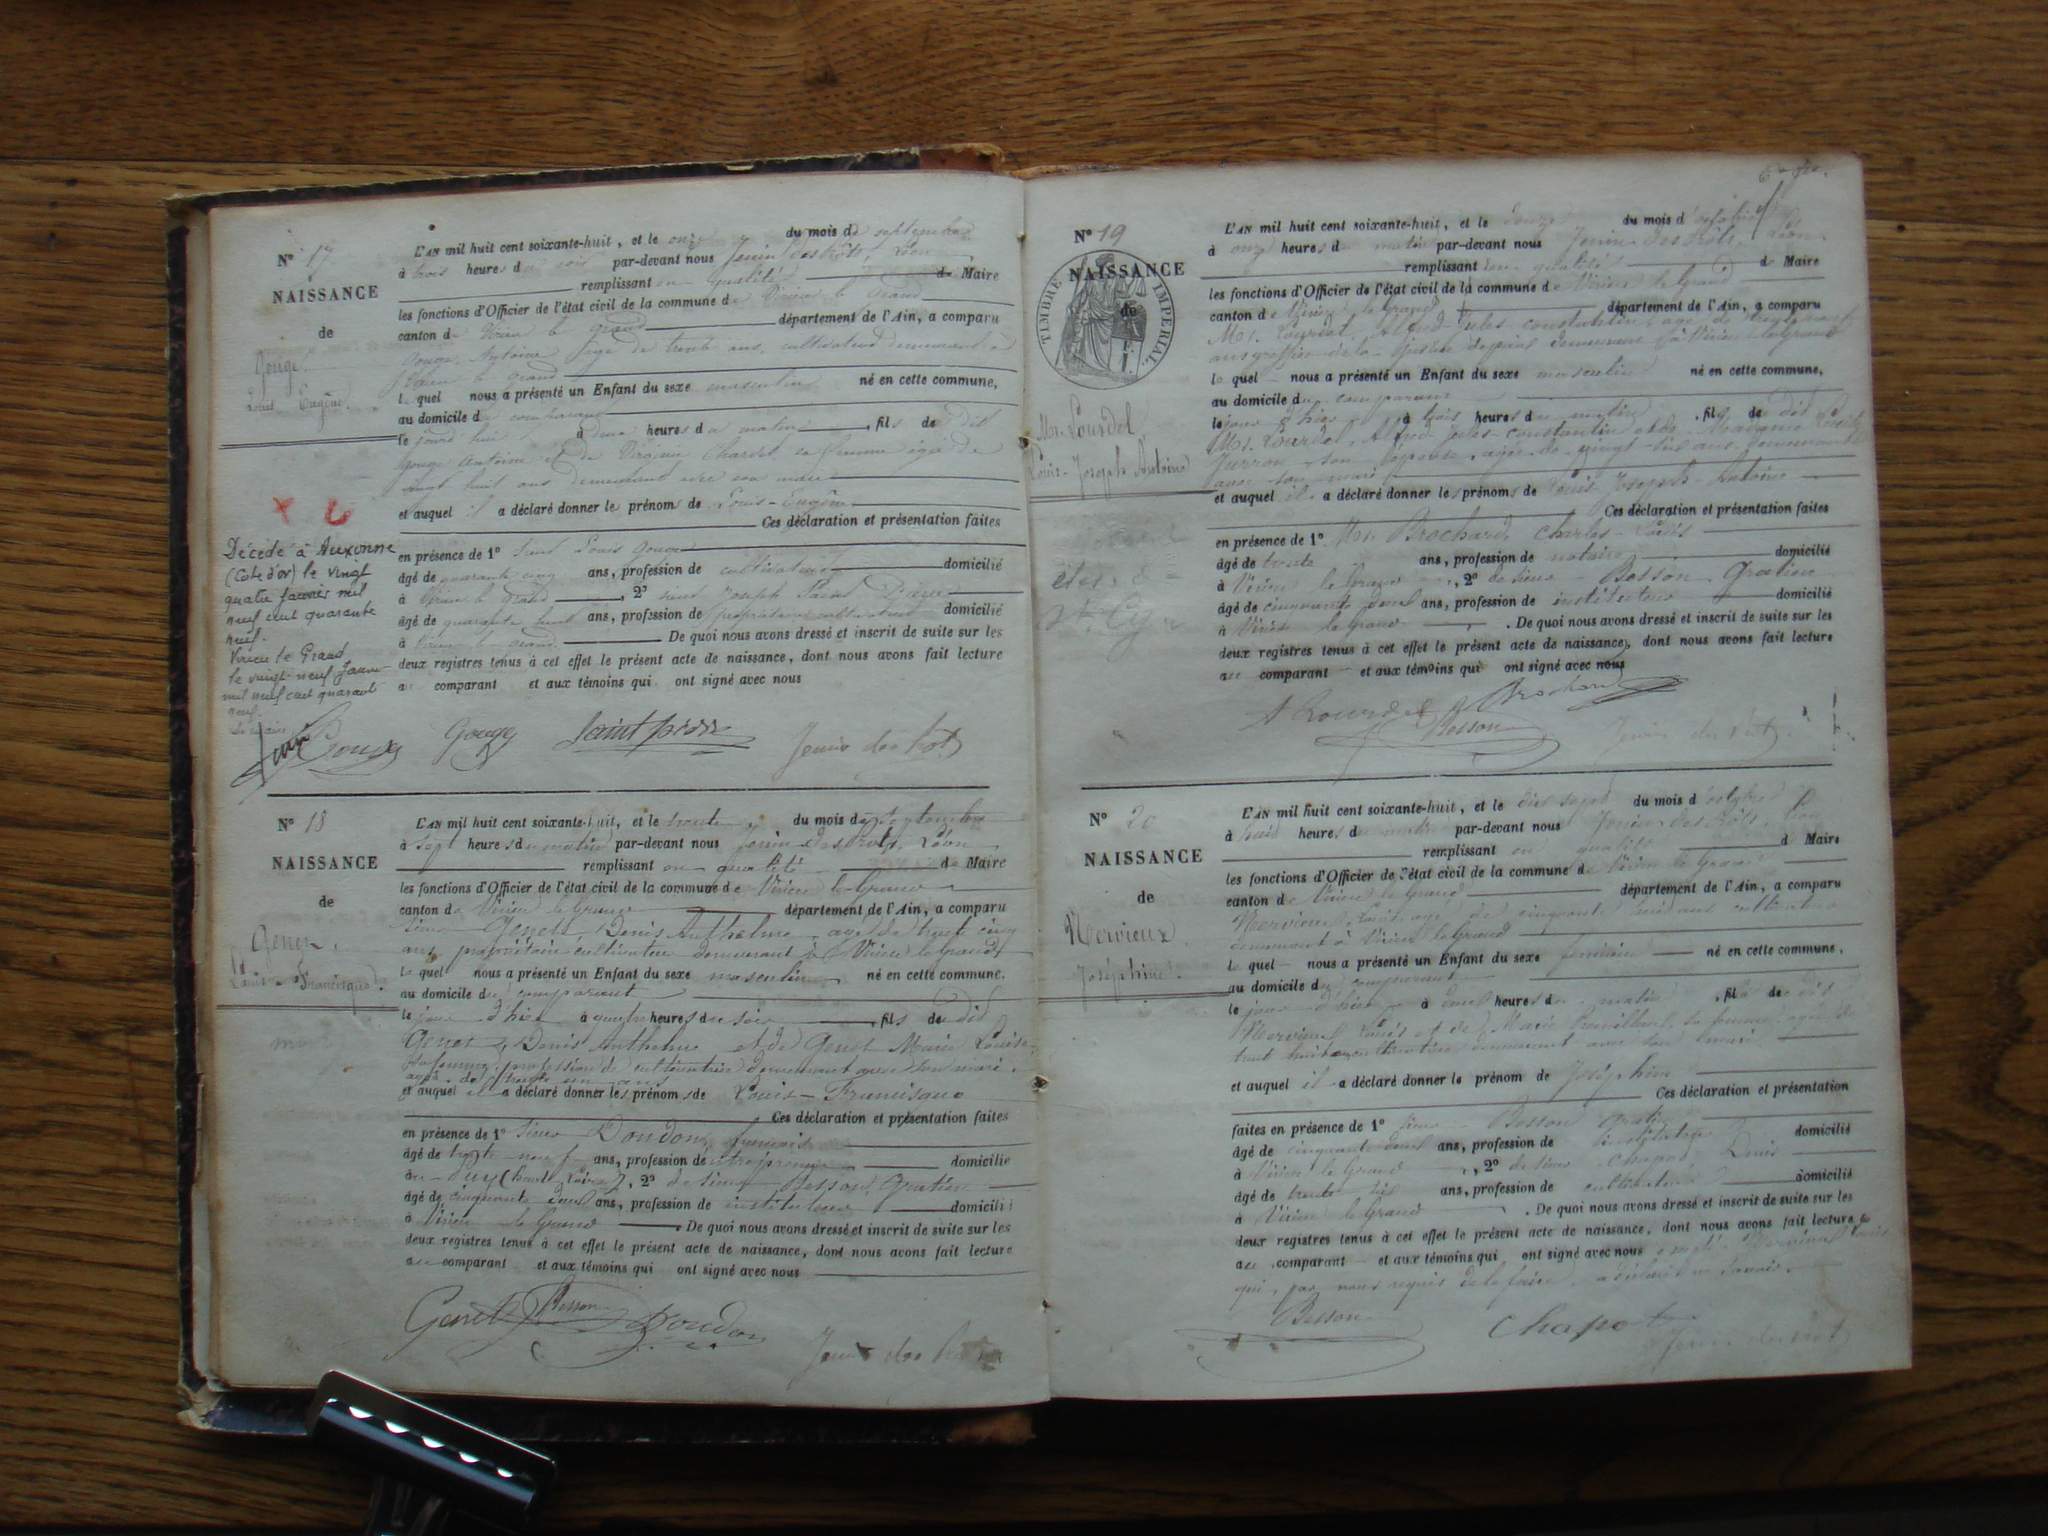 N° 17
NAISSANCE
de
Gouge
Louis Eugène.
L'AN mil huit cent soixante-huit, et le onze du mois de septembre
à trois heures du soir par-devant nous Jenin des Prôts, Léon
remplissant en qualité de Maire
les fonctions d'Officier de l'état civil de la commune de Virieu le Grand
canton de Virieu le grand département de l'Ain, a comparu
Gouge Antoine âgé de trente ans, cultivateur demeurant à
Virieu le grand
lequel nous a présenté un Enfant du sexe masculin né en cette commune,
au domicile du comparant
le jourd'hui à deux heures du matin, fils de dit
Gouge Antoine et de Virginie Charvet sa femme âgée de
vingt huit ans demeurant avec son mari
et auquel il a déclaré donner le prénom de Louis-Eugène
Ces déclaration et présentation faites
en présence de 1° Louis Gouge
âgé de quarante cinq ans, profession de cultivateur domicilié
à Virieu le Grand, 2° Joseph Saint Pierre
âgé de quarante huit ans, profession de propriétaire cultivateur domicilié
à Virieu le grand De quoi nous avons dressé et inscrit de suite sur les
deux registres tenus à cet effet le présent acte de naissance, dont nous avons fait lecture
au comparant et aux témoins qui ont signé avec nous
Décédé à Auxonne
(Cote d'or) le vingt
quatre janvier mil
neuf cent quarante
neuf.
Virieu le Grand
le vingt-neuf Janv
mil neuf cent quarante
neuf.
Le Maire
Gouge Gouge Saint pierre Jenin des Prots
N° 18
NAISSANCE
de
Genet
Louis Francisque
L'AN mil huit cent soixante-huit, et le trente du mois de septembre
à sept heures du matin par-devant nous Jenin des Prots, Léon
remplissant en qualité de Maire
les fonctions d'Officier de l'état civil de la commune de Virieu le Grand
canton de Virieu le Grand département de l'Ain, a comparu
sieur Genet, Denis Anthelme, âgé de trente cinq
ans, propriétaire cultivateur demeurant à Virieu le grand
lequel nous a présenté un Enfant du sexe masculin né en cette commune.
au domicile du comparant
le jour d'hier à quatre heures du soir, fils de dit
Genet, Denis Anthelme et de Genet Marie Louise
sa femme, profession de cultivatrice demeurant avec son mari.
âgée de trente un ans
et auquel il a déclaré donner les prénoms de Louis-Francisque
Ces déclaration et présentation faites
en présence de 1° sieur Doudon, français
âgé de trente-neuf ans, profession d'entrepreneur domicilié
au Puy (haute Loire), 2° de sieur Besson, Gratien
âgé de cinquante deux ans, profession de instituteur domicilié
à Virieu le Grand. De quoi nous avons dressé et inscrit de suite sur les
deux registres tenus à cet effet le présent acte de naissance, dont nous avons fait lecture
au comparant et aux témoins qui ont signé avec nous
Genet Besson Doudon
Jenin des Prots
N° 19
TIMBRE IMPERIAL
NAISSANCE
de
Mr. Lourdel
Louis-Joseph Antoine
L'AN mil huit cent soixante-huit, et le douze du mois d'octobre
à onze heures du matin par-devant nous Jenin des Prôts, Léon
remplissant en qualité de Maire
les fonctions d'Officier de l'état civil de la commune de Virieu le Grand
canton de Virieu le Grand département de l'Ain, a comparu
Mr. Lourdel, Alfred Jules constantin, âgé de
ans greffier de la Justice de paix demeurant à Virieu le Grand
lequel nous a présenté un Enfant du sexe masculin né en cette commune,
au domicile du comparant
le jour d'hier à trois heures du matin, fils de dit
Mr. Lourdel, Alfred Jules-constantin et de Madame
son épouse, âgée de vingt-six ans demeurant
avec son mari
et auquel il a déclaré donner les prénoms de Louis-Joseph-Antoine
Ces déclaration et présentation faites
en présence de 1° Mr. Brochard, Charles-Louis
âgé de trente ans, profession de notaire domicilié
à Virieu le Grand, 2° de sieur Besson Gratien
âgé de cinquante deux ans, profession de instituteur domicilié
à Virieu le Grand. De quoi nous avons dressé et inscrit de suite sur les
deux registres tenus à cet effet le présent acte de naissance, dont nous avons fait lecture
au comparant et aux témoins qui ont signé avec nous
A Lourdel Brochard
Besson Jenin des Prots
N° 20
NAISSANCE
de
Mervieux
Joséphine.
L'AN mil huit cent soixante-huit, et le dix sept du mois d'octobre
à huit heures du matin par-devant nous Jenin des Prôts, Léon
remplissant en qualité de Maire
les fonctions d'Officier de l'état civil de la commune de Virieu le Grand
canton de Virieu le Grand département de l'Ain, a comparu
Mervieux, Louis âgé de cinquante huit ans cultivateur
demeurant à Virieu le Grand
lequel nous a présenté un Enfant du sexe féminin né en cette commune.
au domicile du comparant
le jour d'hier à deux heures du matin, fille de dit
Mervieux Louis et de Marie sa femme âgée de
trente huit ans cultivatrice demeurant avec son mari
et auquel il a déclaré donner le prénom de Joséphine
Ces déclaration et présentation
faites en présence de 1° sieur Besson Gratien
âgé de cinquante deux ans, profession de instituteur domicilié
à Virieu le Grand, 2° de sieur Chapot Denis
âgé de trente six ans, profession de cultivateur domicilié
à Virieu le Grand. De quoi nous avons dressé et inscrit de suite sur les
deux registres tenus à cet effet le présent acte de naissance, dont nous avons fait lecture
au comparant et aux témoins qui ont signé avec nous excepté Mervieux Louis
qui, par nous requis de le faire, a déclaré ne savoir.
Besson Chapot
Jenin des Prots